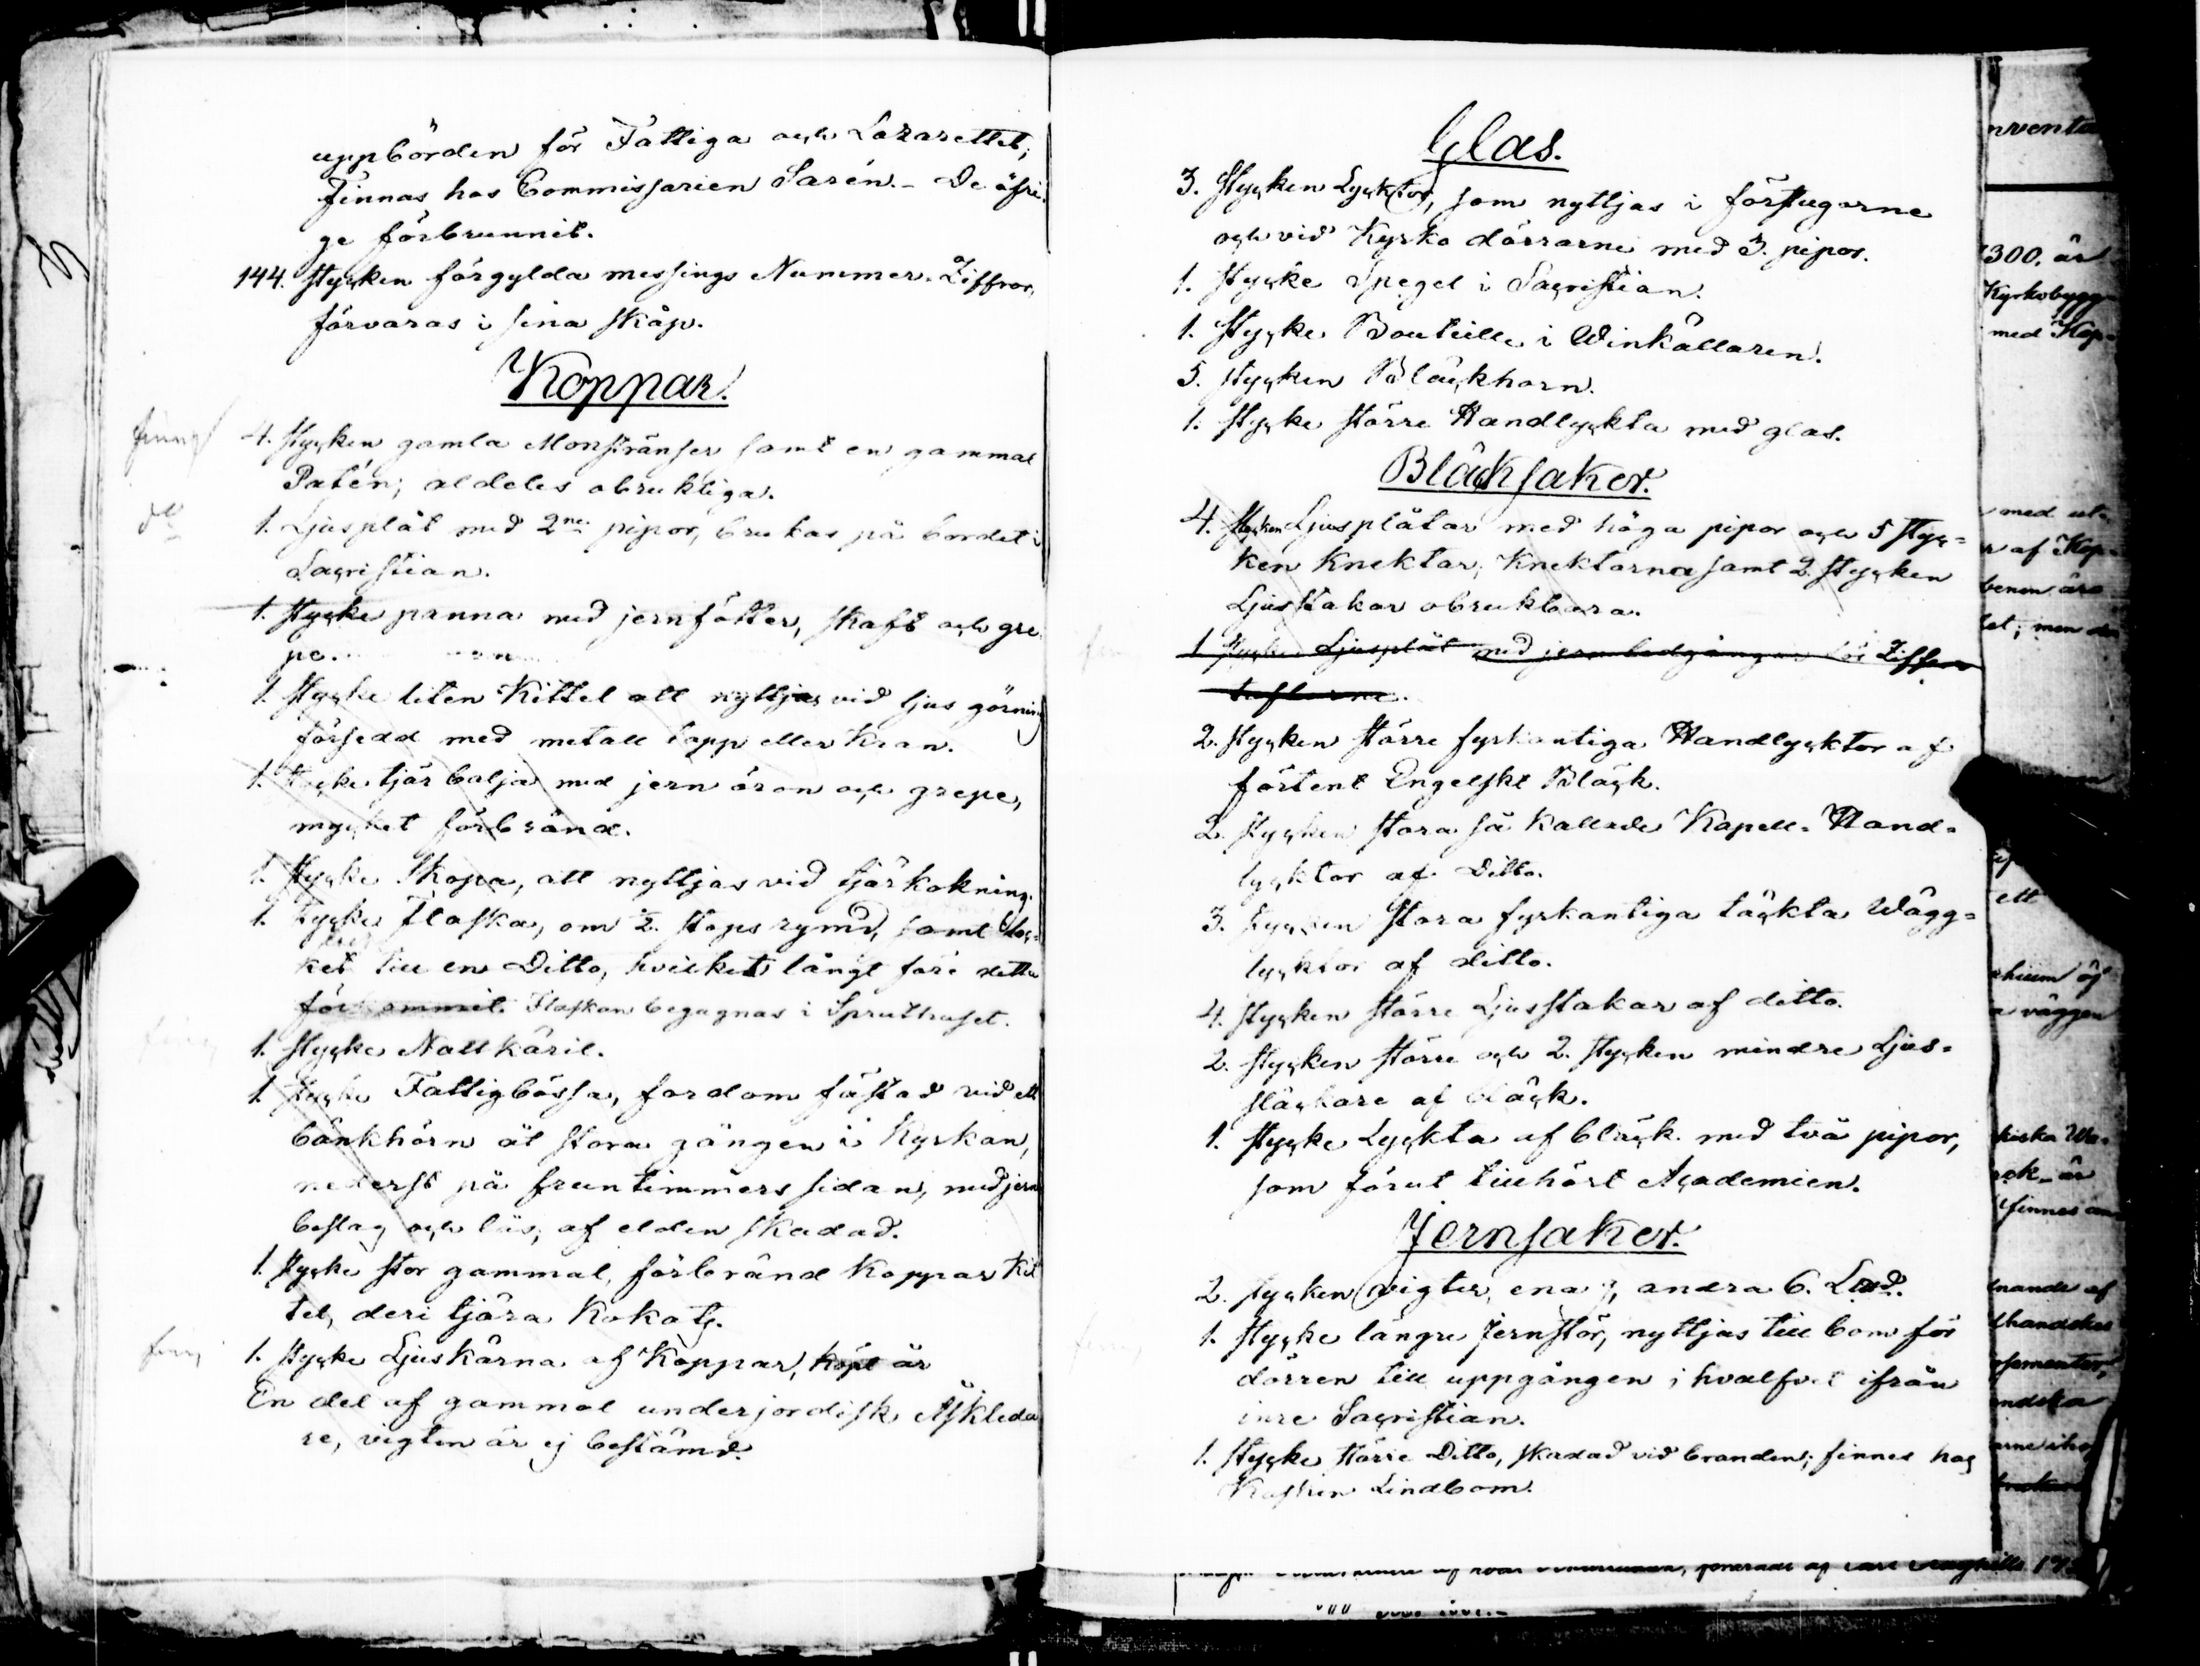 uppbörden för Fattiga och Lazarettet;
Finnas hos Commissarien Sarén. – De öfri-
ge förbrunnit.
144. Stycken förgylda messings Nummer-Ziffror,
förvaras i sina skåp.
Koppar.
4. Stycken gamla Monstränser samt en gammal
Patén; aldeles obrukliga.
1. Ljusplåt med 2ne pipor, brukas på bordet i
Sacristian.
1. Stycke panna med jernfötter, skaft och gre-
pe.
1. Stycke liten Kittel att nyttjas vid ljus görning
försedd med metall tapp eller Kran.
1. Stycke tjär balja med jern öron och grepe,
mycket förbränd.
1. Stycke Skopa, att nyttjas vid tjärkokning.
1. Stycke Flaska, om ½ Stops rymd, samt loc-
ket till en Ditto, hvilket långt före detta
förkommit. Flaskan begagnas i Spruthuset.
1. Stycke Nattkäril.
1. Stycke Fattigbössa, fordom fästad vid ett
bänkhörn åt stora gången i Kyrkan,
nederst på fruntimmers sidan, med jern
beslag och lås; af elden skadad.
1. Stycke stor gammal, förbränd Koppar Kit
tel, deri tjära Kokats.
1. Stycke Ljuskärna af Koppar, köpt år
En del af gammal underjordisk Åskleda
re, vigten är ej bestämd.
Glas.
3. Stycken Lycktor, som nyttjas i förstugorne
och vid Kyrko dörrarne med 3. pipor.
1. Stycke Spegel i Sacristian.
1. Stycke Bouteille i Winkällaren.
5. Stycken Bläckhorn.
1. Stycke större Handlyckta med glas.
Bläcksaker.
4. Stycken Ljusplåtar med höga pipor och 5 Styc-
ken Knektar; Knektarna samt 2 Stycken
Ljusstakar obrukbara.
1 Stycke Ljusplåt med jern ledgångar för Ziffer
taflorne.
2. Stycken större fyrkantiga Handlycktor af
förtent Engelskt Bläck.
2. Stycken stora så kallade Kapell-Hand-
lycktor af Ditto.
3. Stycken stora fyrkantiga täckta Wägg-
lycktor af ditto.
4. Stycken större Ljusstakar af ditto.
2. Stycken större och 2. Stycken mindre Ljus-
släckare af bläck.
1. Stycke Lyckta af bläck med två pipor,
som förut tillhört Academien.
Jernsaker.
2. Stycken vigter, ena andra 6.
1. Stycke längre Jernstör, nyttjas till bom för
dörren till uppgången i hvalfvet ifrån
inre Sacristian.
1. Stycke större Ditto, skadad vid branden; finnes hos
Lindbom.
300. är
Kyrkobygg
med Kop-
med ut-
af Kop-
let; men
ett
väggen
finnes